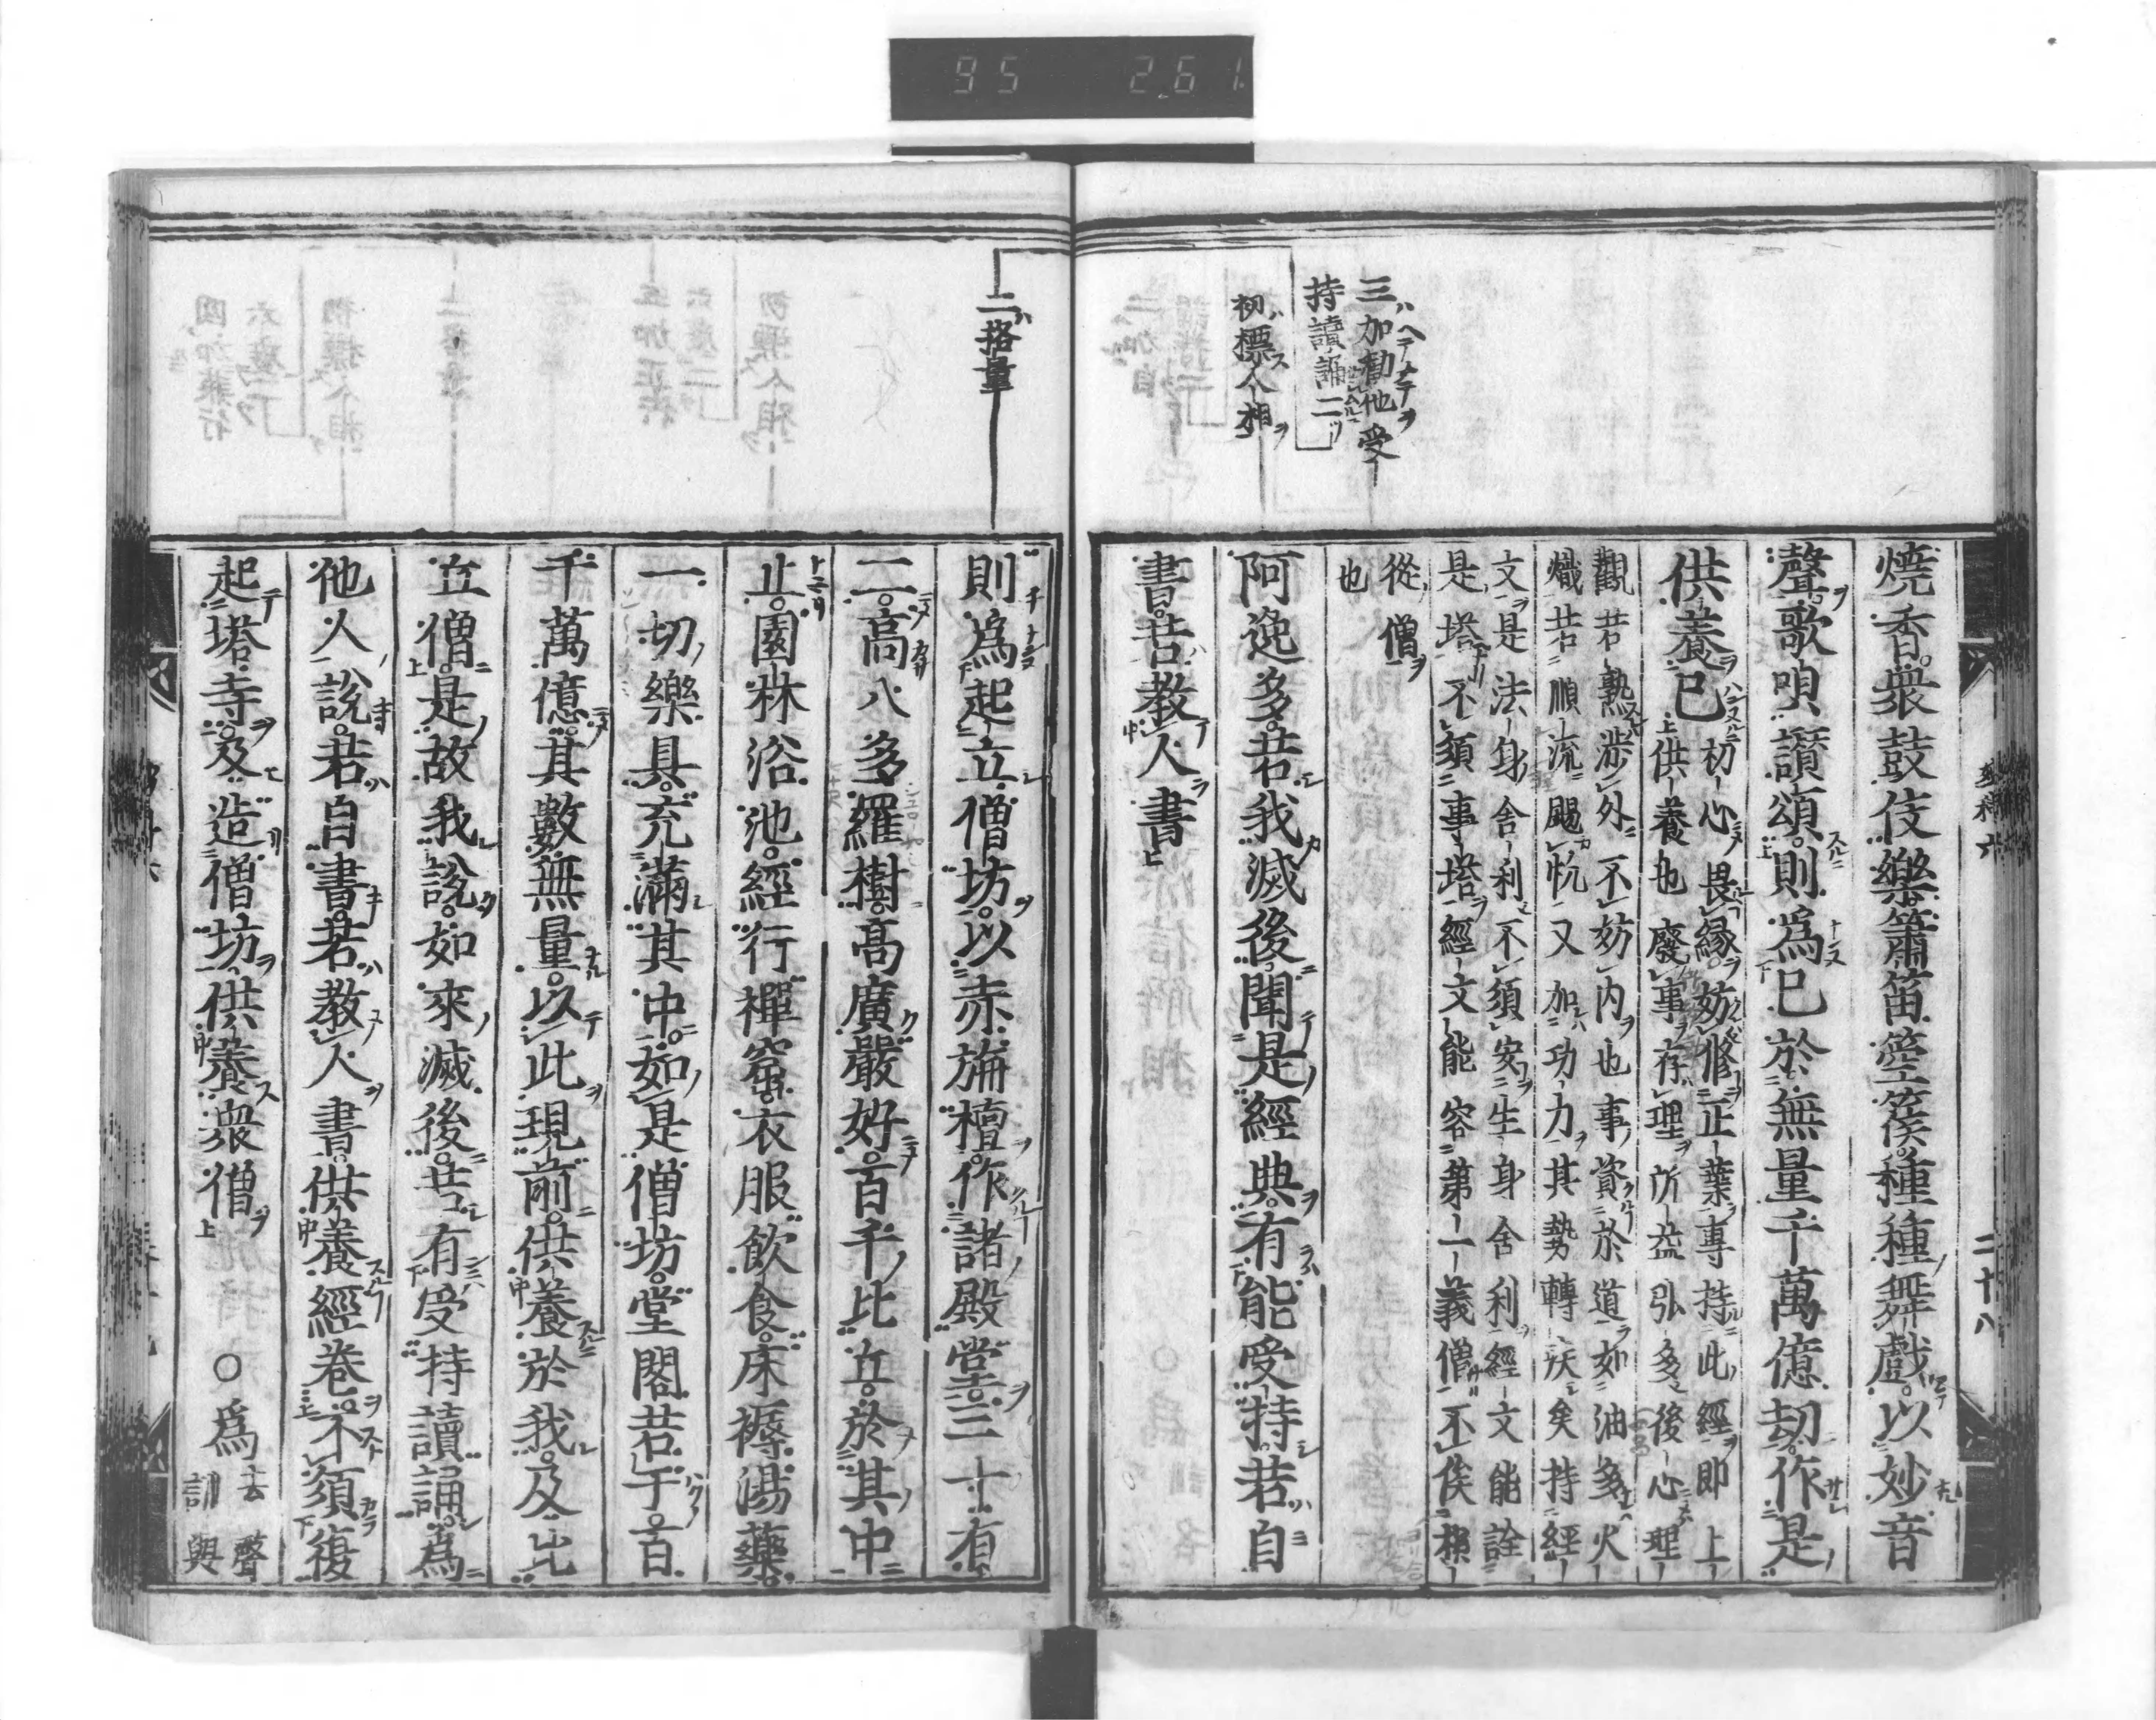 95 261
三加勸他受
持讀誦二
初標人相
燒香衆鼓伎樂簫笛箜篌種種舞戲以妙音
聲歌唄讚頌則爲已於無量千萬億劫作是
供養已
初心畏緣妨修正業專持此經即上
供養也廢事存理所益弘多後心理
觀若熟涉外不妨内也事資於道如油多火
熾若順流颺帆又加功力其勢轉疾矣持經
文是法身舍利不須安生身舍利經文能詮
是塔不須事塔經文能容第一義僧不俟
從僧
也
阿逸多若我滅後聞是經典有能受持若自
書若教人書
二十八
二格量
則爲起立僧坊以赤栴檀作諸殿堂三十有
二高八多羅樹高廣嚴好百千比丘於其中
止園林浴池經行禪窟衣服飲食床褥湯藥
一切樂具充滿其中如是僧坊堂閣若干百
千萬億其數無量以此現前供養於我及比
丘僧是故我說如來滅後若有受持讀誦爲
他人說若自書若教人書供養經卷不須復
起塔寺及造僧坊供養衆僧
○爲去聲
訓與